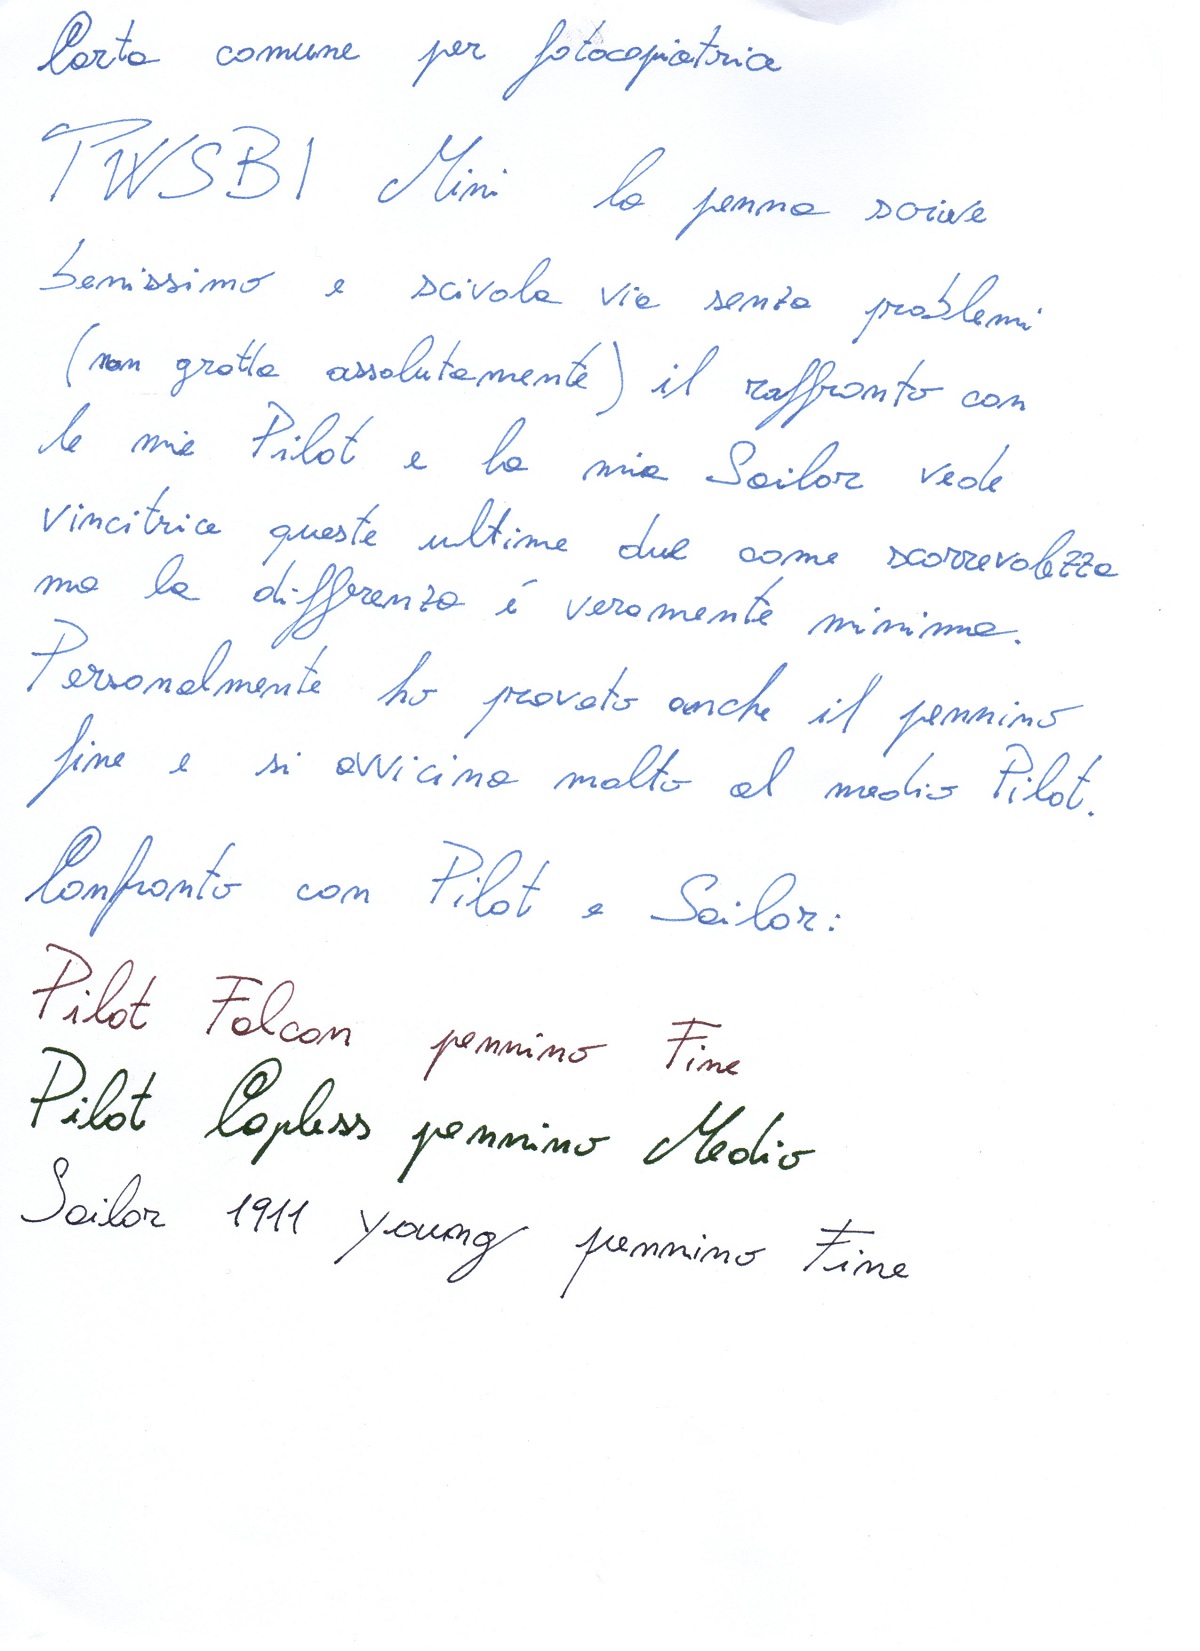 Carta comune per fotocopiatrice
TWSBI Mini la penna scrive
benissimo e scivola via senza problemi
(non gratta assolutamente) il raffronto con
le mie Pilot e la mia Sailor vede
vincitrice queste ultime due come scorrevolezza
ma la differenza é veramente minima.
Personalmente ho provato anche il pennino
fine e si avvicina molto al medio Pilot.
Confronto con Pilot e Sailor:
Pilot Falcon pennino Fine
Pilot Capless pennino Medio
Sailor 1911 young pennino Fine